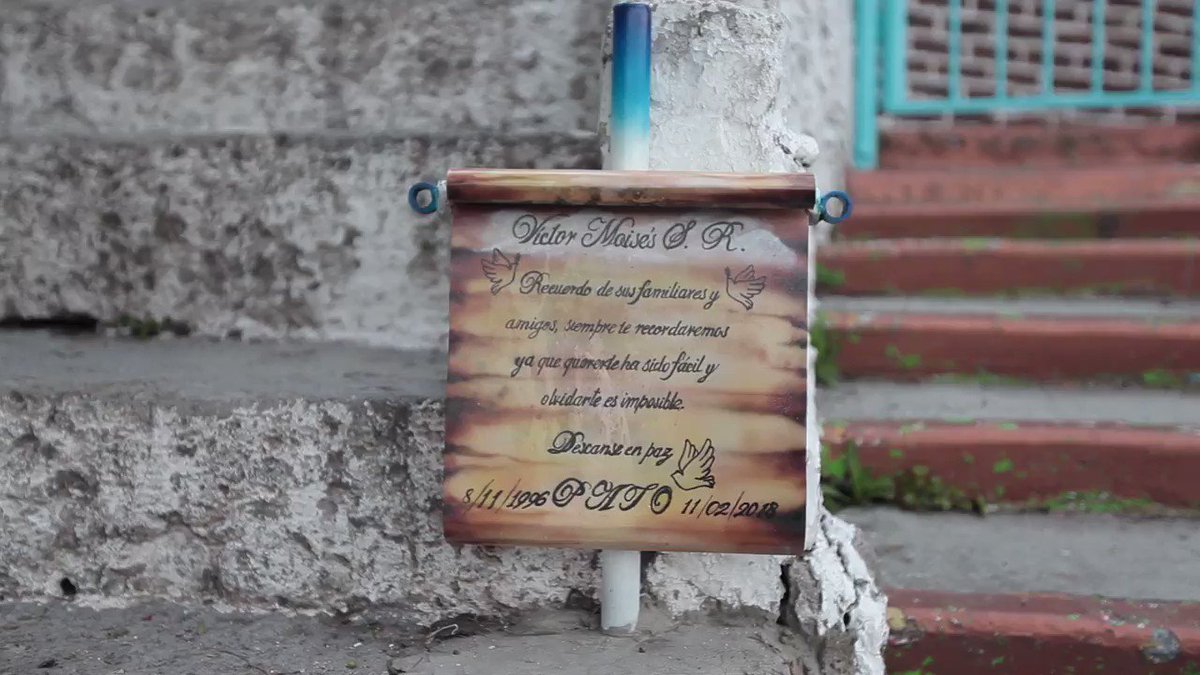 Victor Moisés S. R.
Recuerdo de sus familiares y
amigos, siempre te recordaremos
ya que quererte ha sido fácil y
olvidarte es imposible.
Descanse en paz
8/11/1996 PATO 11/02/2018